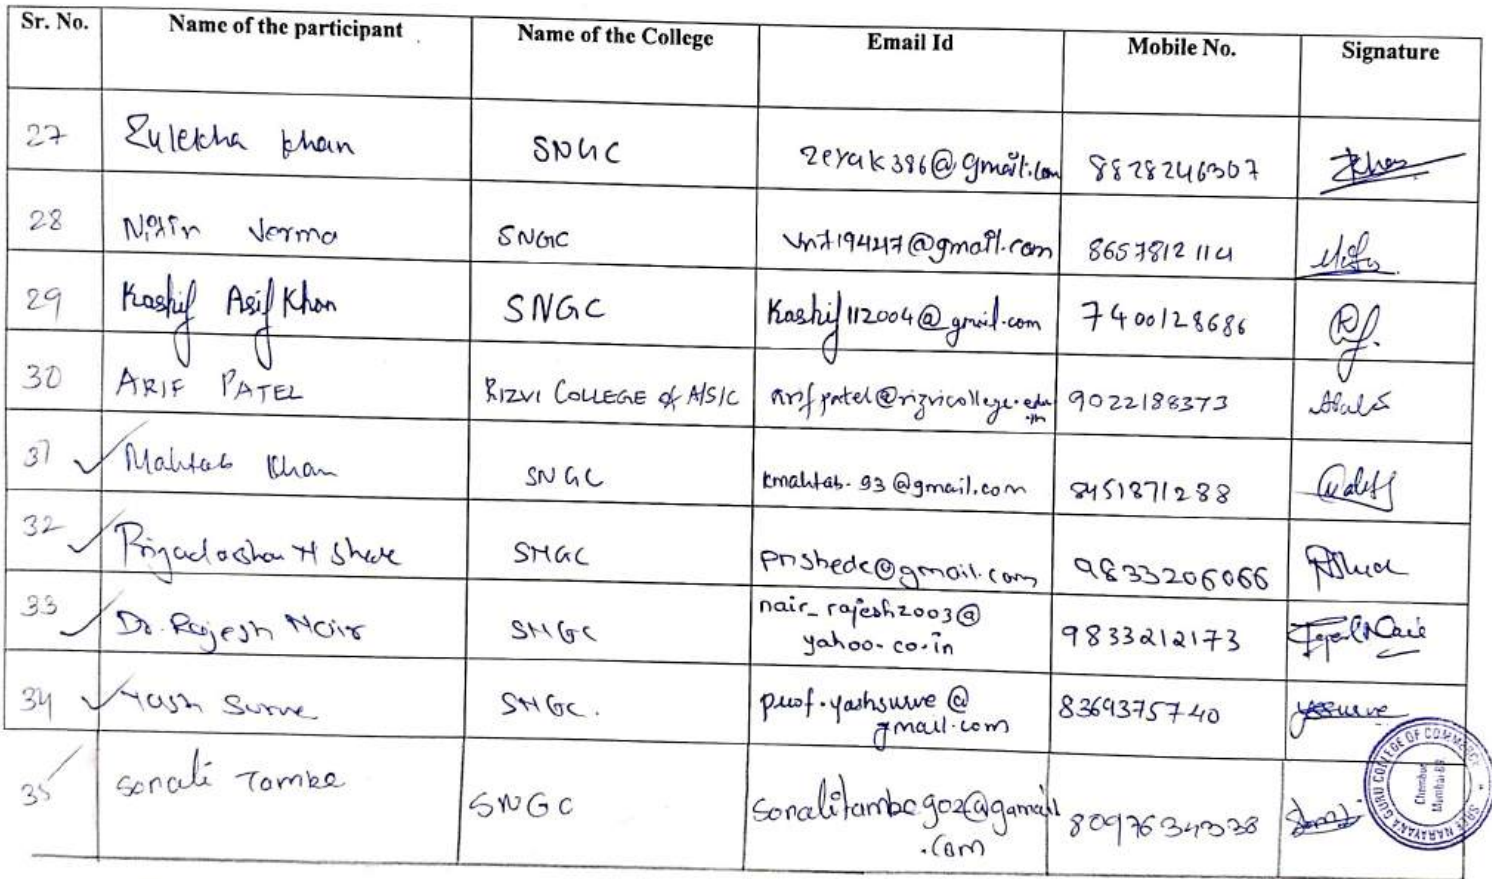 Sr. No. Name of the participant Name of the College Email Id Mobile No. Signature
27 Zulekha khan SNGC zerak386@gmail.com 8828246307
28 Nitin Verma SNGC vn719447@gmail.com 8657812114
29 Kashif Asif Khan SNGC Kashif112004@gmail.com 7400128686
30 ARIF PATEL RIZVI COLLEGE of A/S/C arif.patel@rizvicollege.edu
.in
9022188373
31 Mahtab Khan SNGC kmahtab.93@gmail.com 8451871288
32 Priyadarshan H Shede SNGC pnshede@gmail.com 9833206066
33 Dr. Rajesh Nair SNGC nair_rajesh2003@
yahoo.co.in
9833212173
34 Yash Surve SNGC. prof.yashsurve@
gmail.com
8369375740 ysurve
35 Sonali Tambe SNGC Sonalitambe902@gamail
.com
8097634338
SREE NARAYANA GURU COLLEGE OF COMMERCE
Chembur
Mumbai-89